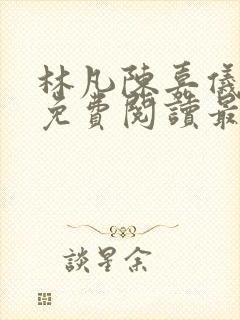 林凡陳嘉儀
免費閱讀最
談星余